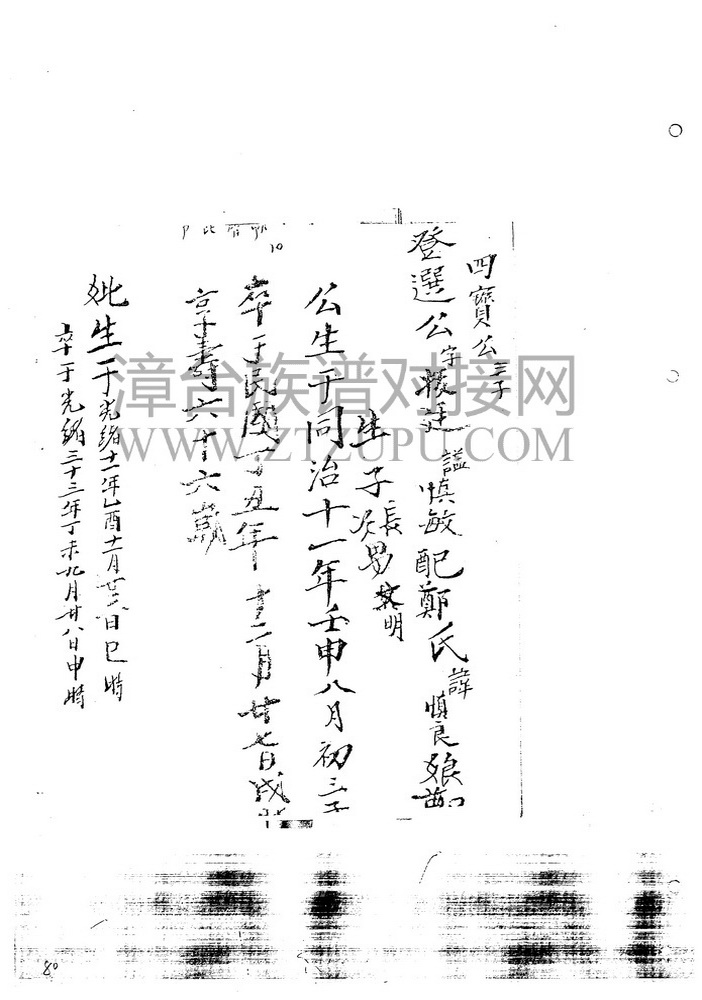 四寶公三子
登選公字 謚慎敏配鄭氏諱慎良娘
生子長男 明
公生于同治十一年壬申八月初三子
卒于民國丁丑年十二月廿七日戌
享壽六十六歲
妣生于光緒十一年乙酉十一月廿 日巳時
卒于光緒三十三年丁未九月廿八日申時
10
漳台族谱对接网
WWW.ZTZUPU.COM
80